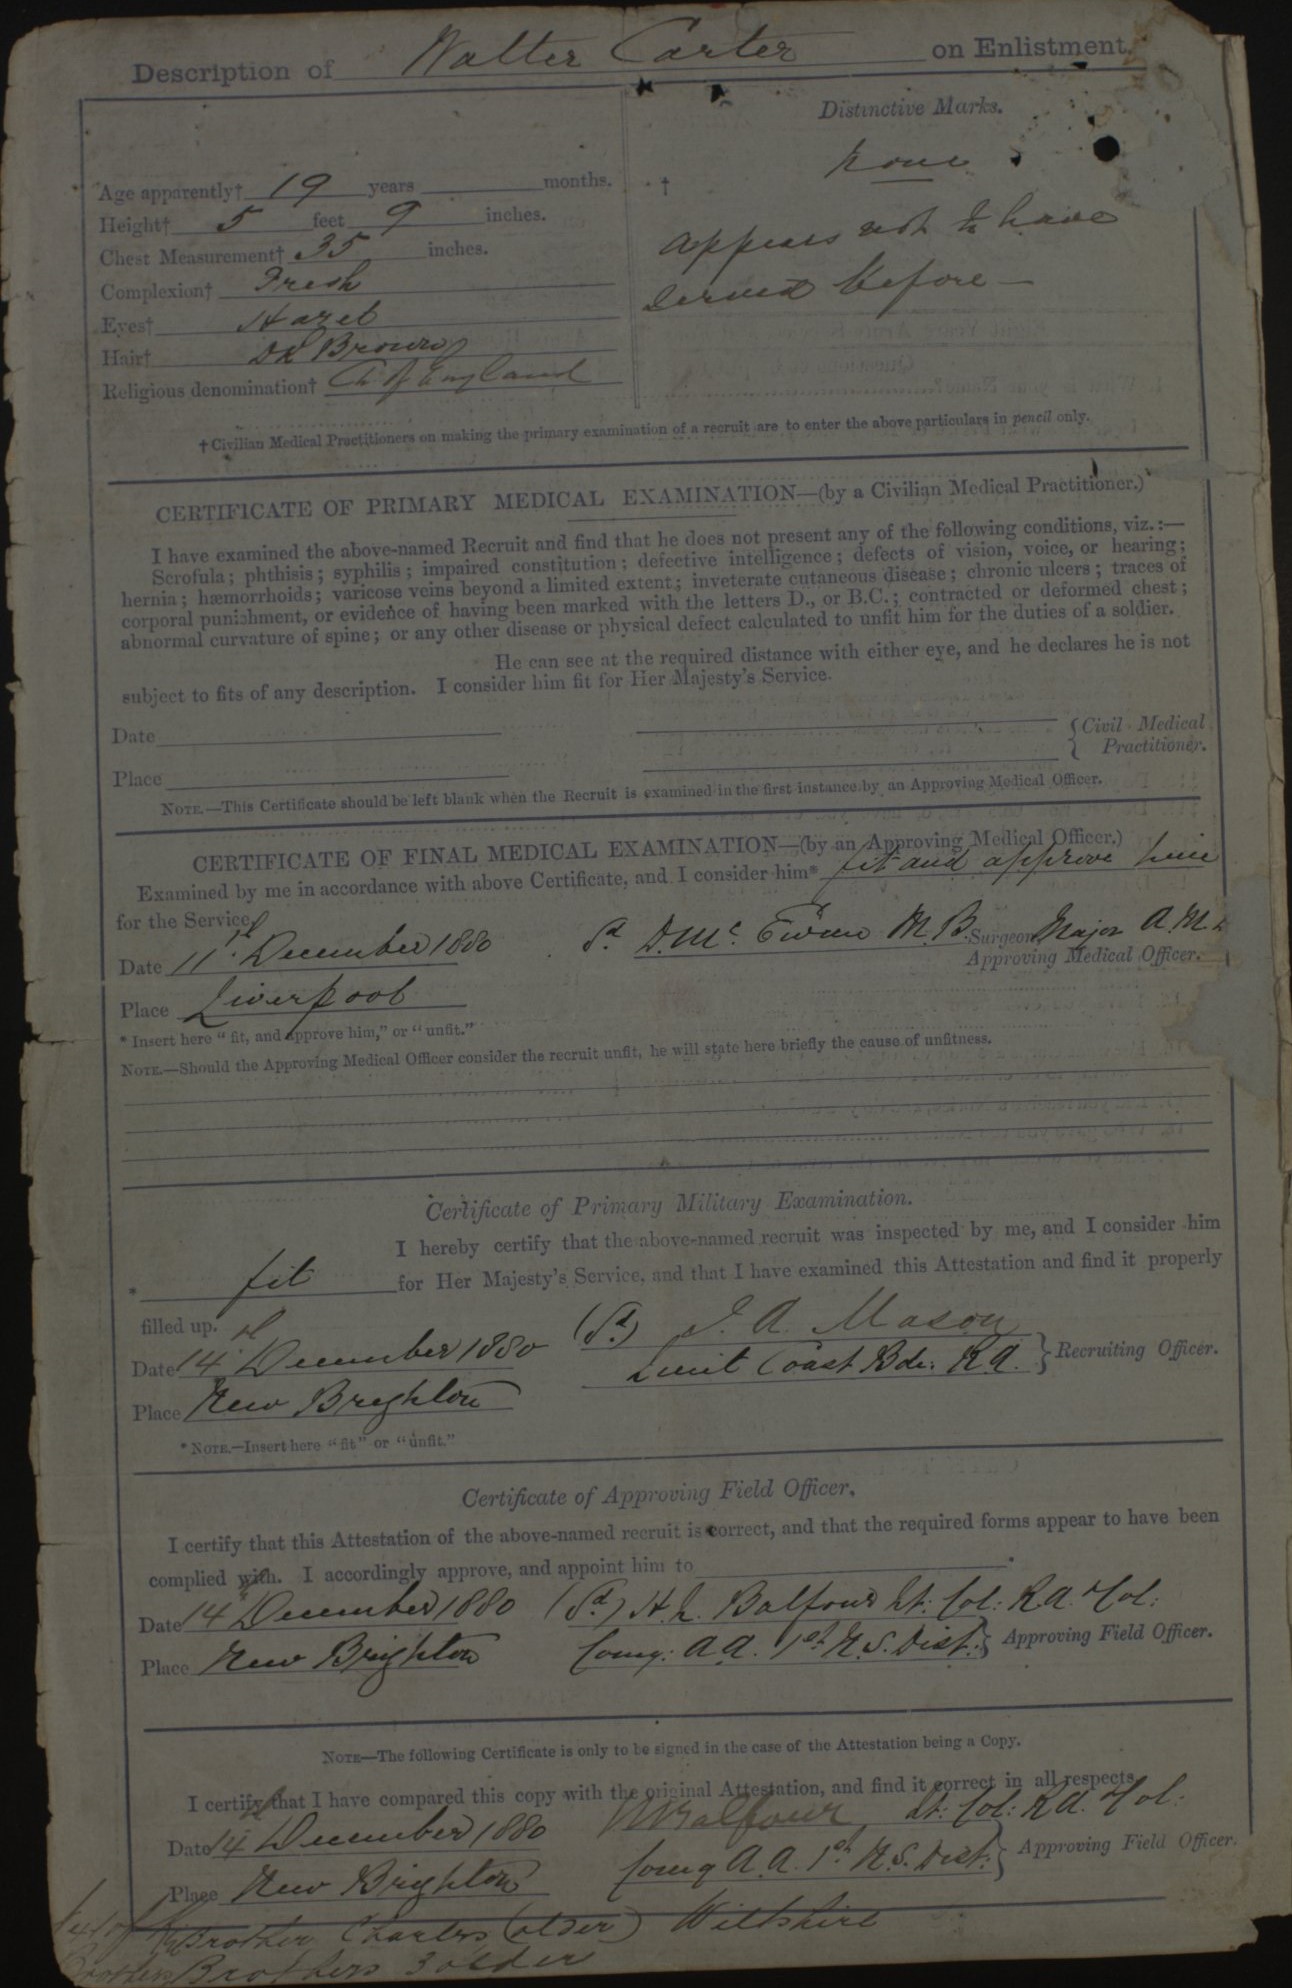 Description of Walter Carter on Enlistment.
Distinctive Marks.
None
Age apparently† 19 years months.
†
Height† 5 feet 9 inches.
appears not to have
Chest Measurement† 35 inches.
Complexion† Fresh
served before —
Eyes† Hazel
Hair† Dk Brown
Religious denomination† Ch of England
† Civilian Medical Practitioners on making the primary examination of a recruit are to enter the above particulars in pencil only.
CERTIFICATE OF PRIMARY MEDICAL EXAMINATION—(by a Civilian Medical Practitioner.)
I have examined the above-named Recruit and find that he does not present any of the following conditions, viz.:—
Scrofula; phthisis; syphilis; impaired constitution; defective intelligence; defects of vision, voice, or hearing;
hernia; hæmorrhoids; varicose veins beyond a limited extent; inveterate cutaneous disease; chronic ulcers; traces of
corporal punishment, or evidence of having been marked with the letters D., or B.C.; contracted or deformed chest;
abnormal curvature of spine; or any other disease or physical defect calculated to unfit him for the duties of a soldier.
He can see at the required distance with either eye, and he declares he is not
subject to fits of any description. I consider him fit for Her Majesty's Service.
Date
{ Civil Medical
Practitioner.
Place
NOTE.—This Certificate should be left blank when the Recruit is examined in the first instance by an Approving Medical Officer.
CERTIFICATE OF FINAL MEDICAL EXAMINATION—(by an Approving Medical Officer.)
Examined by me in accordance with above Certificate, and I consider him* fit and approve him
for the Service
Date 11 December 1880 Sd D. Mc Ewen M.B. Surgeon Major A.M.
Approving Medical Officer.
Place Liverpool
* Insert here "fit, and approve him," or "unfit."
NOTE.—Should the Approving Medical Officer consider the recruit unfit, he will state here briefly the cause of unfitness.
Certificate of Primary Military Examination.
I hereby certify that the above-named recruit was inspected by me, and I consider him
* fit for Her Majesty's Service, and that I have examined this Attestation and find it properly
filled up.
(Sd) J. A. Mason
Date 14 December 1880 Lieut Coast Bde: R.A. } Recruiting Officer.
Place New Brighton
* NOTE.—Insert here "fit" or "unfit."
Certificate of Approving Field Officer.
I certify that this Attestation of the above-named recruit is correct, and that the required forms appear to have been
complied with. I accordingly approve, and appoint him to .
Date 14 December 1880 (Sd) H. L. Balfour Lt: Col: R.A.
Place New Brighton Comg: A.A. 1st N.S. Dist. } Approving Field Officer.
NOTE—The following Certificate is only to be signed in the case of the Attestation being a Copy.
I certify that I have compared this copy with the original Attestation, and find it correct in all respects.
Date 14 December 1880 Balfour Lt: Col: R.A.
Place New Brighton Comg A.A. 1st N.S. Dist. } Approving Field Officer.
Brother Charles (older) Wiltshire
Brothers 3 older